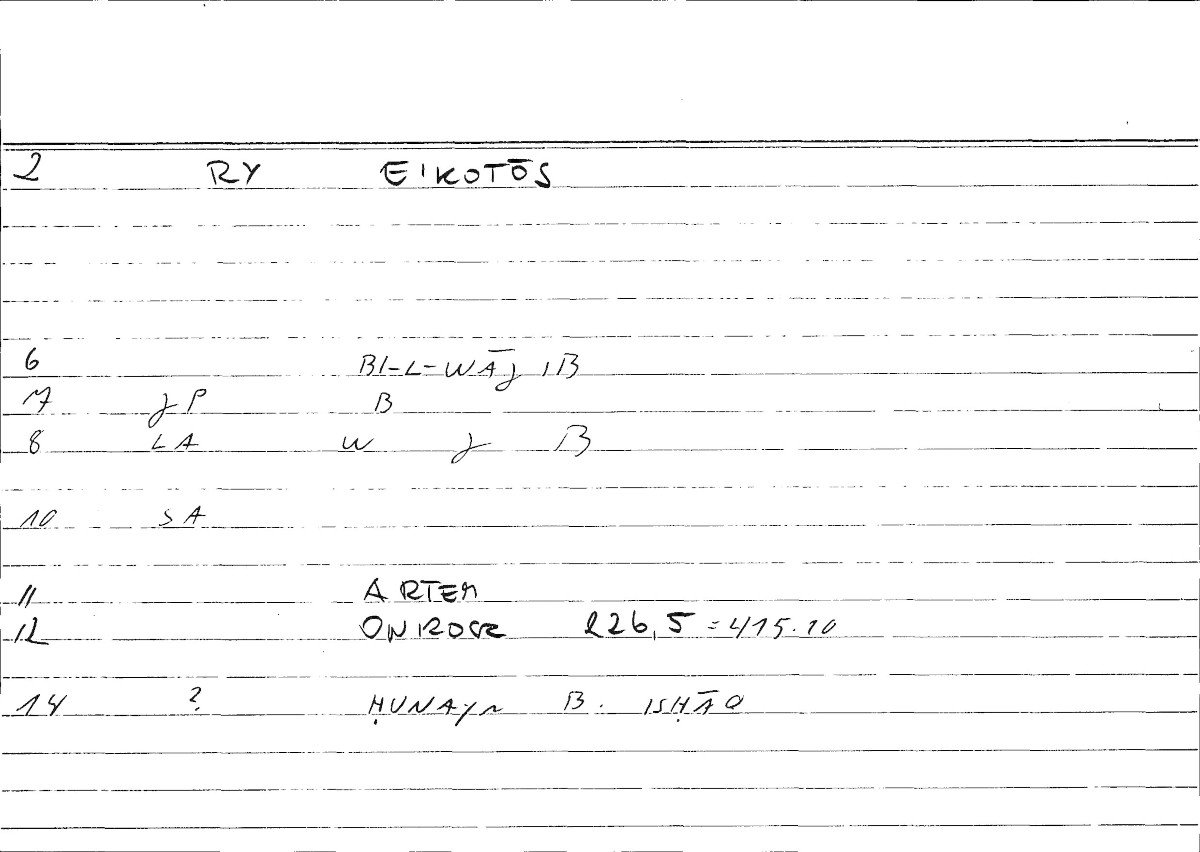 2 RY EIKOTŌS
6 BI-L-WĀJ IB
7 JP B
8 LA W J B
10 SA
11 ARTEM
12 ONIROCR 226,5 = 415.10
14 ? ḤUNAYN B. ISḤĀQ